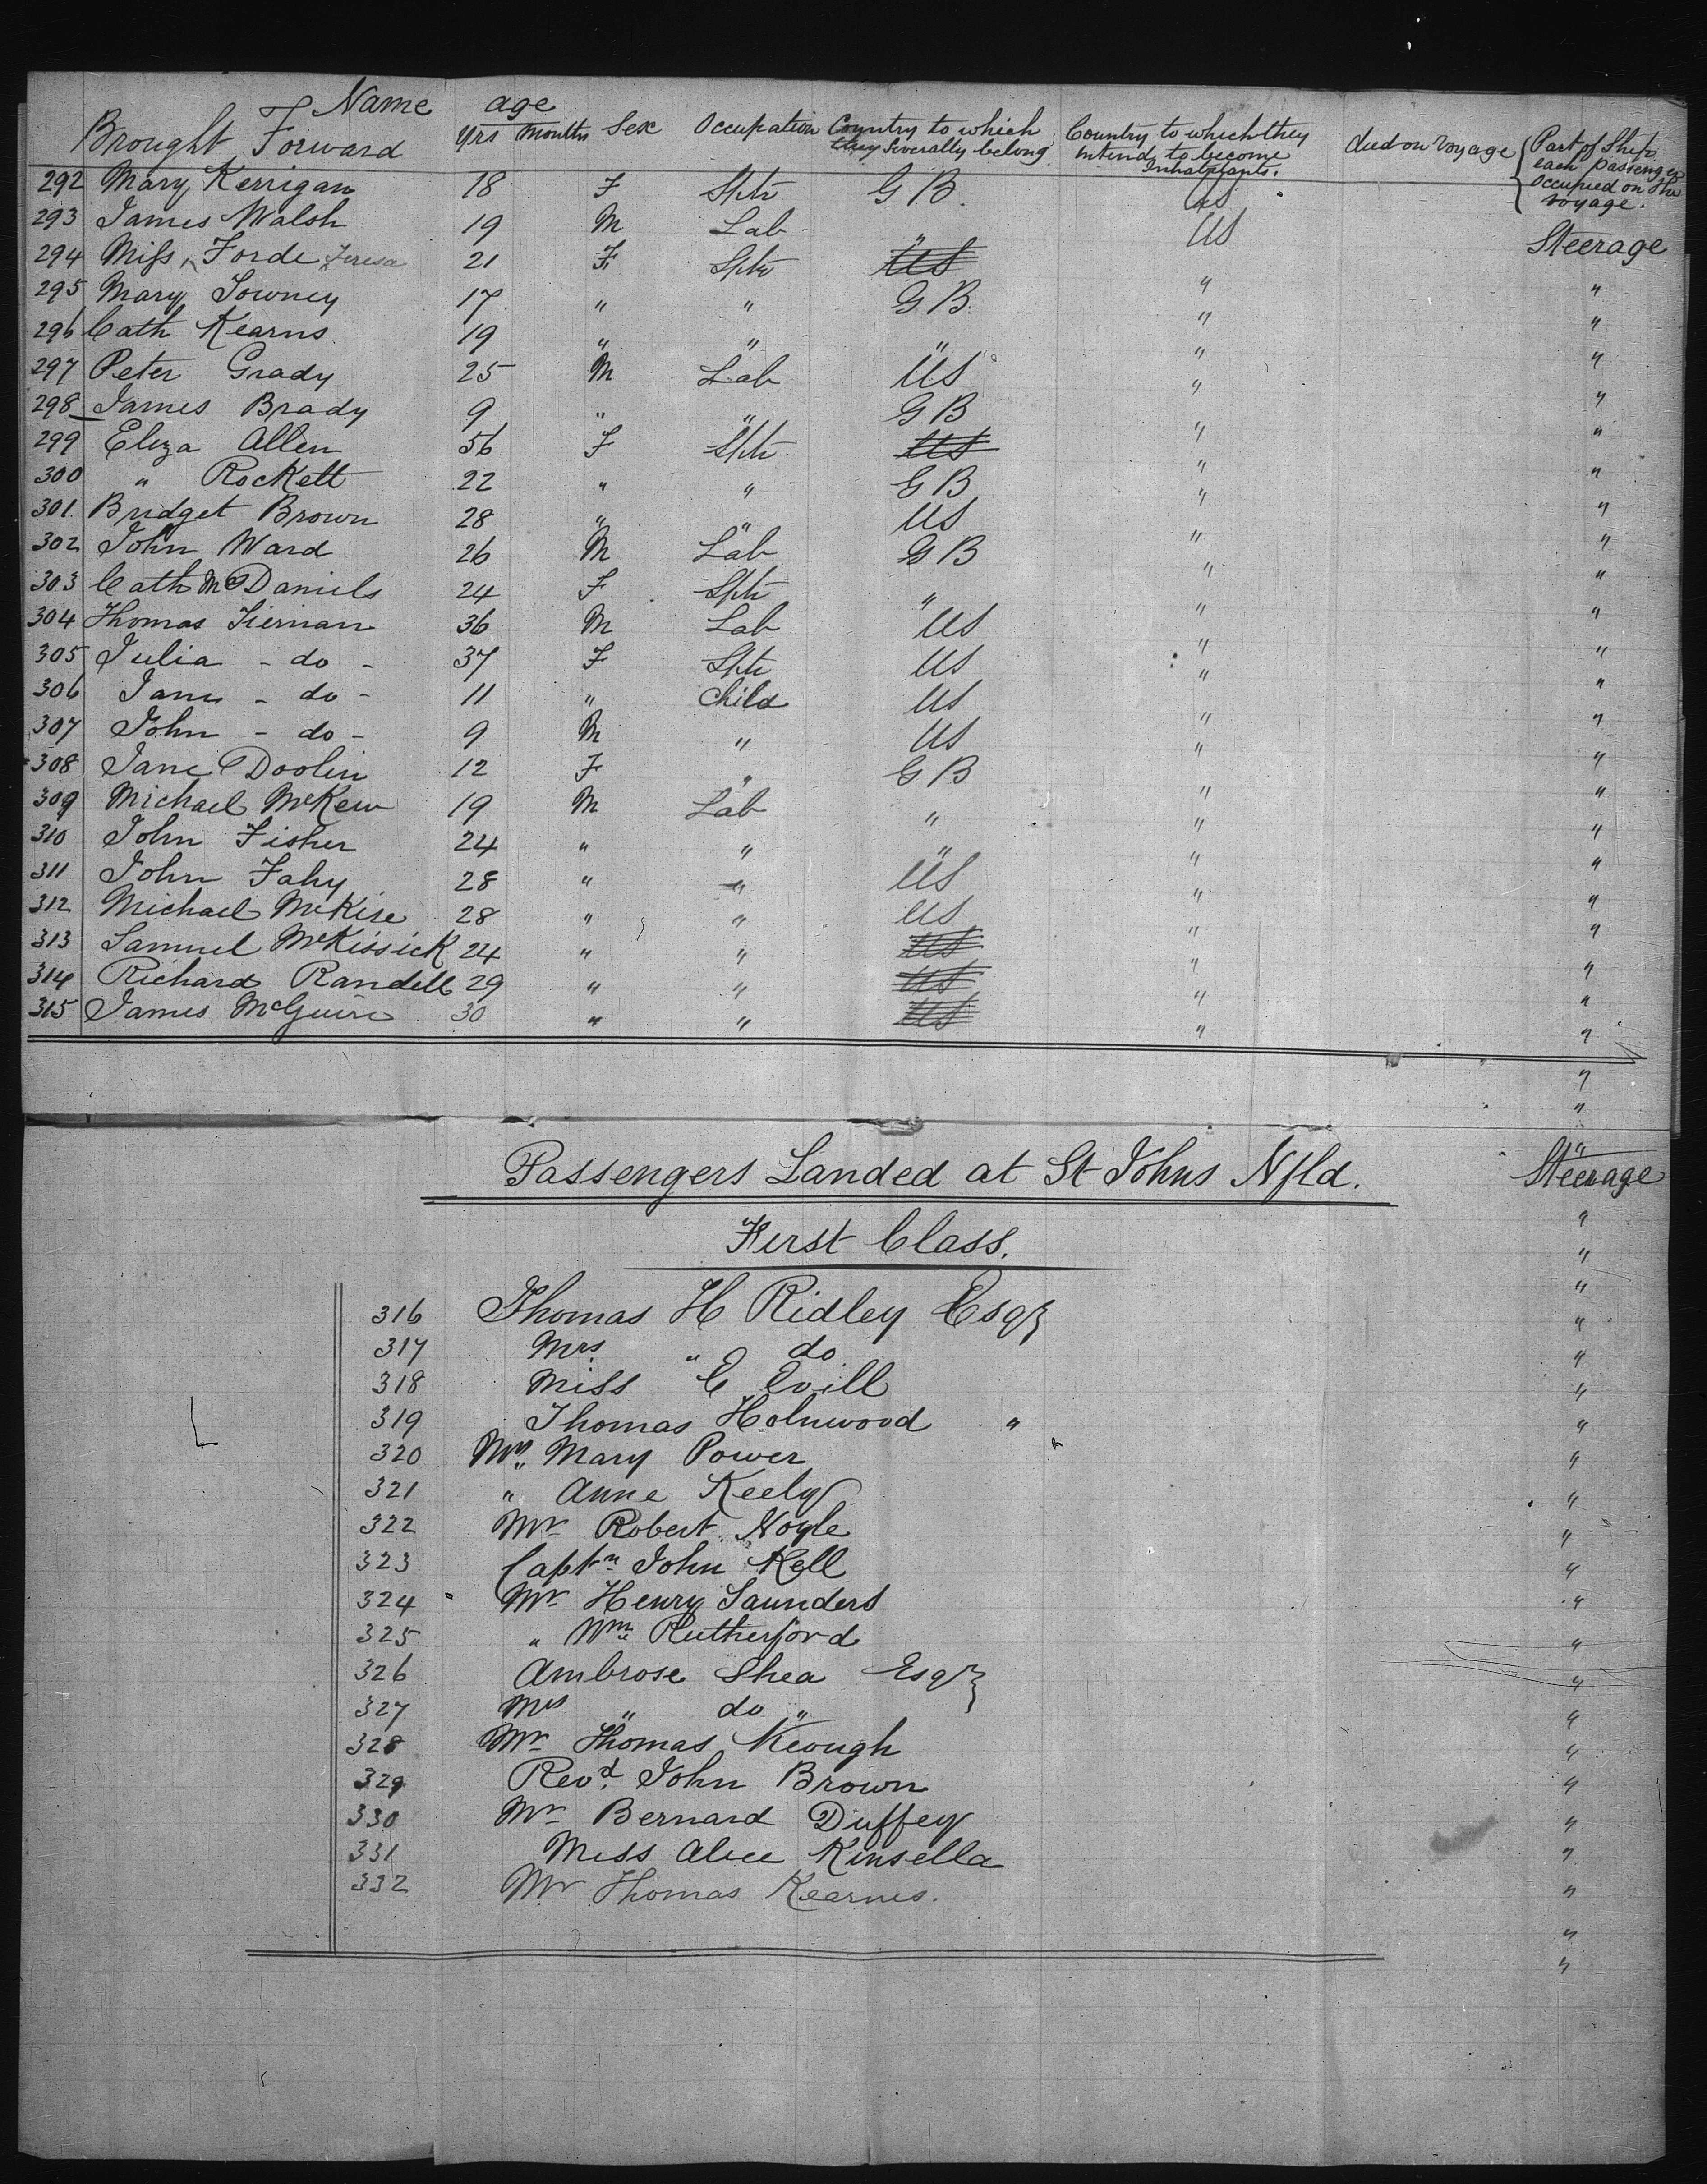 Name age
Brought Forward Yrs Months Sex Occupation Country to which they Severally belong Country to which they intend to become Inhabitants. died on Voyage Part of Ship each passenger occupied on the voyage.
292 Mary Kerrigan 18 F Sptr G B. US
293 James Walsh 19 M Lab " US Steerage
294 Miss Forde Teresa 21 F Sptr US " "
295 Mary Towney 17 " " G B. " "
296 Cath Kearns 19 " " " " "
297 Peter Grady 25 M Lab US " "
298 James Brady 9 " " G B " "
299 Eliza Allen 56 F Sptr US " "
300 " Rockett 22 " " G B " "
301. Bridget Brown 28 " " US " "
302 John Ward 26 M Lab G B " "
303 Cath McDaniels 24 F Sptr " " "
304 Thomas Tiernan 36 M Lab US " "
305 Julia - do - 37 F Sptr US " "
306 Jane - do - 11 " Child US " "
307 John - do - 9 M " US " "
308 Jane Doolin 12 F " G B " "
309 Michael McKew 19 M Lab " " "
310 John Fisher 24 " " " " "
311 John Fahy 28 " " US " "
312 Michael McKise 28 " " US " "
313 Samuel McKissick 24 " " US " "
314 Richard Randell 29 " " US " "
315 James McGuire 30 " " US " "
Passengers Landed at St Johns Nfld. Steerage
First Class.
316 Thomas H Ridley Esqr
317 Mrs " do
318 Miss E Evill
319 Thomas Holmwood "
320 Mrs " Mary Power
321 " Anne Keely
322 Mr Robert Noyle
323 Captn John Kell
324 Mr Henry Saunders
325 " Wm Rutherford
326 Ambrose Shea Esqr
327 Mrs " do "
328 Mr Thomas Keough
329 Revd. John Brown
330 Mr Bernard Duffey
331 Miss Alice Kinsella
332 Mr Thomas Kearnes.